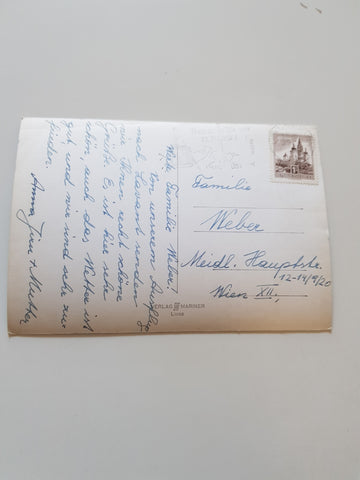 Liebe Familie Weber!
Von unserem Ausflug
nach Lavant senden
wir Ihnen recht schöne
Grüße. Es ist hier sehr
schön, auch das Wetter ist
gut, und wir sind sehr zu-
frieden.
Anna, + Mutter
Familie
Weber
Meidl. Hauptstr.
12-14/9/20
Wien XII.,
VERLAG MARINER
Lienz